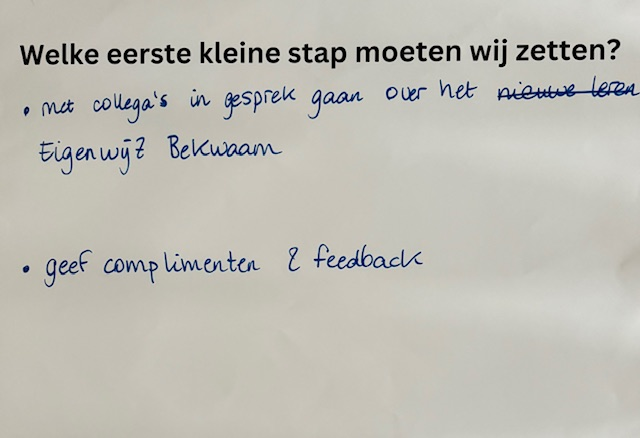 Welke eerste kleine stap moeten wij zetten?
• met collega's in gesprek gaan over het ~~nieuwe leren~~
Eigenwijz Bekwaam
• geef complimenten & feedback